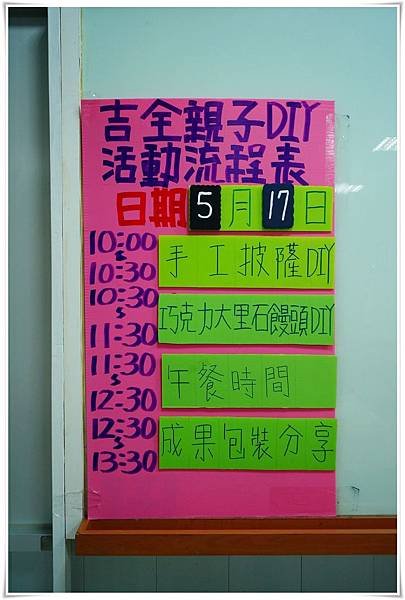 吉全親子DIY
活動流程表
日期5月17日
10:00
~
10:30
手工披薩DIY
10:30
~
11:30
巧克力大里石饅頭DIY
11:30
~
12:30
午餐時間
12:30
~
13:30
成果包裝分享